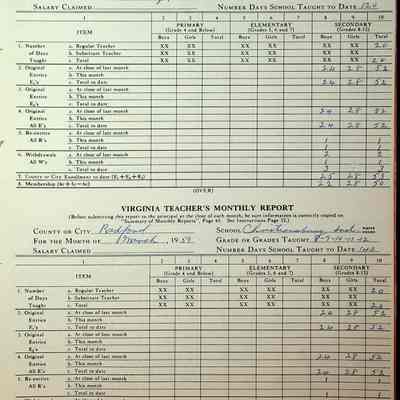 SALARY CLAIMED NUMBER DAYS SCHOOL TAUGHT TO DATE 124
1 2 3 4 5 6 7 8 9 10
ITEM PRIMARY (Grade 4 and Below) ELEMENTARY (Grades 5, 6 and 7) SECONDARY (Grades 8-12)
Boys Girls Total Boys Girls Total Boys Girls Total
1. Number a. Regular Teacher XX XX XX XX XX XX XX XX 20
of Days b. Substitute Teacher XX XX XX XX XX XX XX XX
Taught c. Total XX XX XX XX XX XX XX XX 20
2. Original a. At close of last month 24 28 52
Entries b. This month
E₁'s c. Total to date 24 28 52
3. Original a. At close of last month
Entries b. This month
E₂'s c. Total to date
4. Original a. At close of last month 24 28 52
Entries b. This month
All E's c. Total to date 24 28 52
5. Re-entries a. At close of last month 1 1
b. This month
All R's c. Total to date 1 1
6. Withdrawals a. At close of last month 2 2
b. This month 1 1
All W's c. Total to date 3 3
7. County or City Enrollment to date (E₁+E₂+R₂) 25 28 53
8. Membership (4c + 5c - 6c) 22 28 50
(OVER)
VIRGINIA TEACHER'S MONTHLY REPORT
(Before submitting this report to the principal at the close of each month, be sure information is correctly copied on
"Summary of Monthly Reports", Page 40. See Instructions Page 32.)
COUNTY OR CITY Radford SCHOOL Christiansburg Ind.
FOR THE MONTH OF March, 1959 GRADE OR GRADES TAUGHT 8-9-10-11-12
SALARY CLAIMED NUMBER DAYS SCHOOL TAUGHT TO DATE
1 2 3 4 5 6 7 8 9 10
ITEM PRIMARY (Grade 4 and Below) ELEMENTARY (Grades 5, 6 and 7) SECONDARY (Grades 8-12)
Boys Girls Total Boys Girls Total Boys Girls Total
1. Number a. Regular Teacher XX XX XX XX XX XX XX XX 20
of Days b. Substitute Teacher XX XX XX XX XX XX XX XX
Taught c. Total XX XX XX XX XX XX XX XX 20
2. Original a. At close of last month 24 28 52
Entries b. This month
E₁'s c. Total to date 24 28 52
3. Original a. At close of last month
Entries b. This month
E₂'s c. Total to date
4. Original a. At close of last month 24 28 52
Entries b. This month
All E's c. Total to date 24 28 52
5. Re-entries a. At close of last month 1 1
b. This month
All R's c. Total to date 1 1
6. Original a. At close of last month